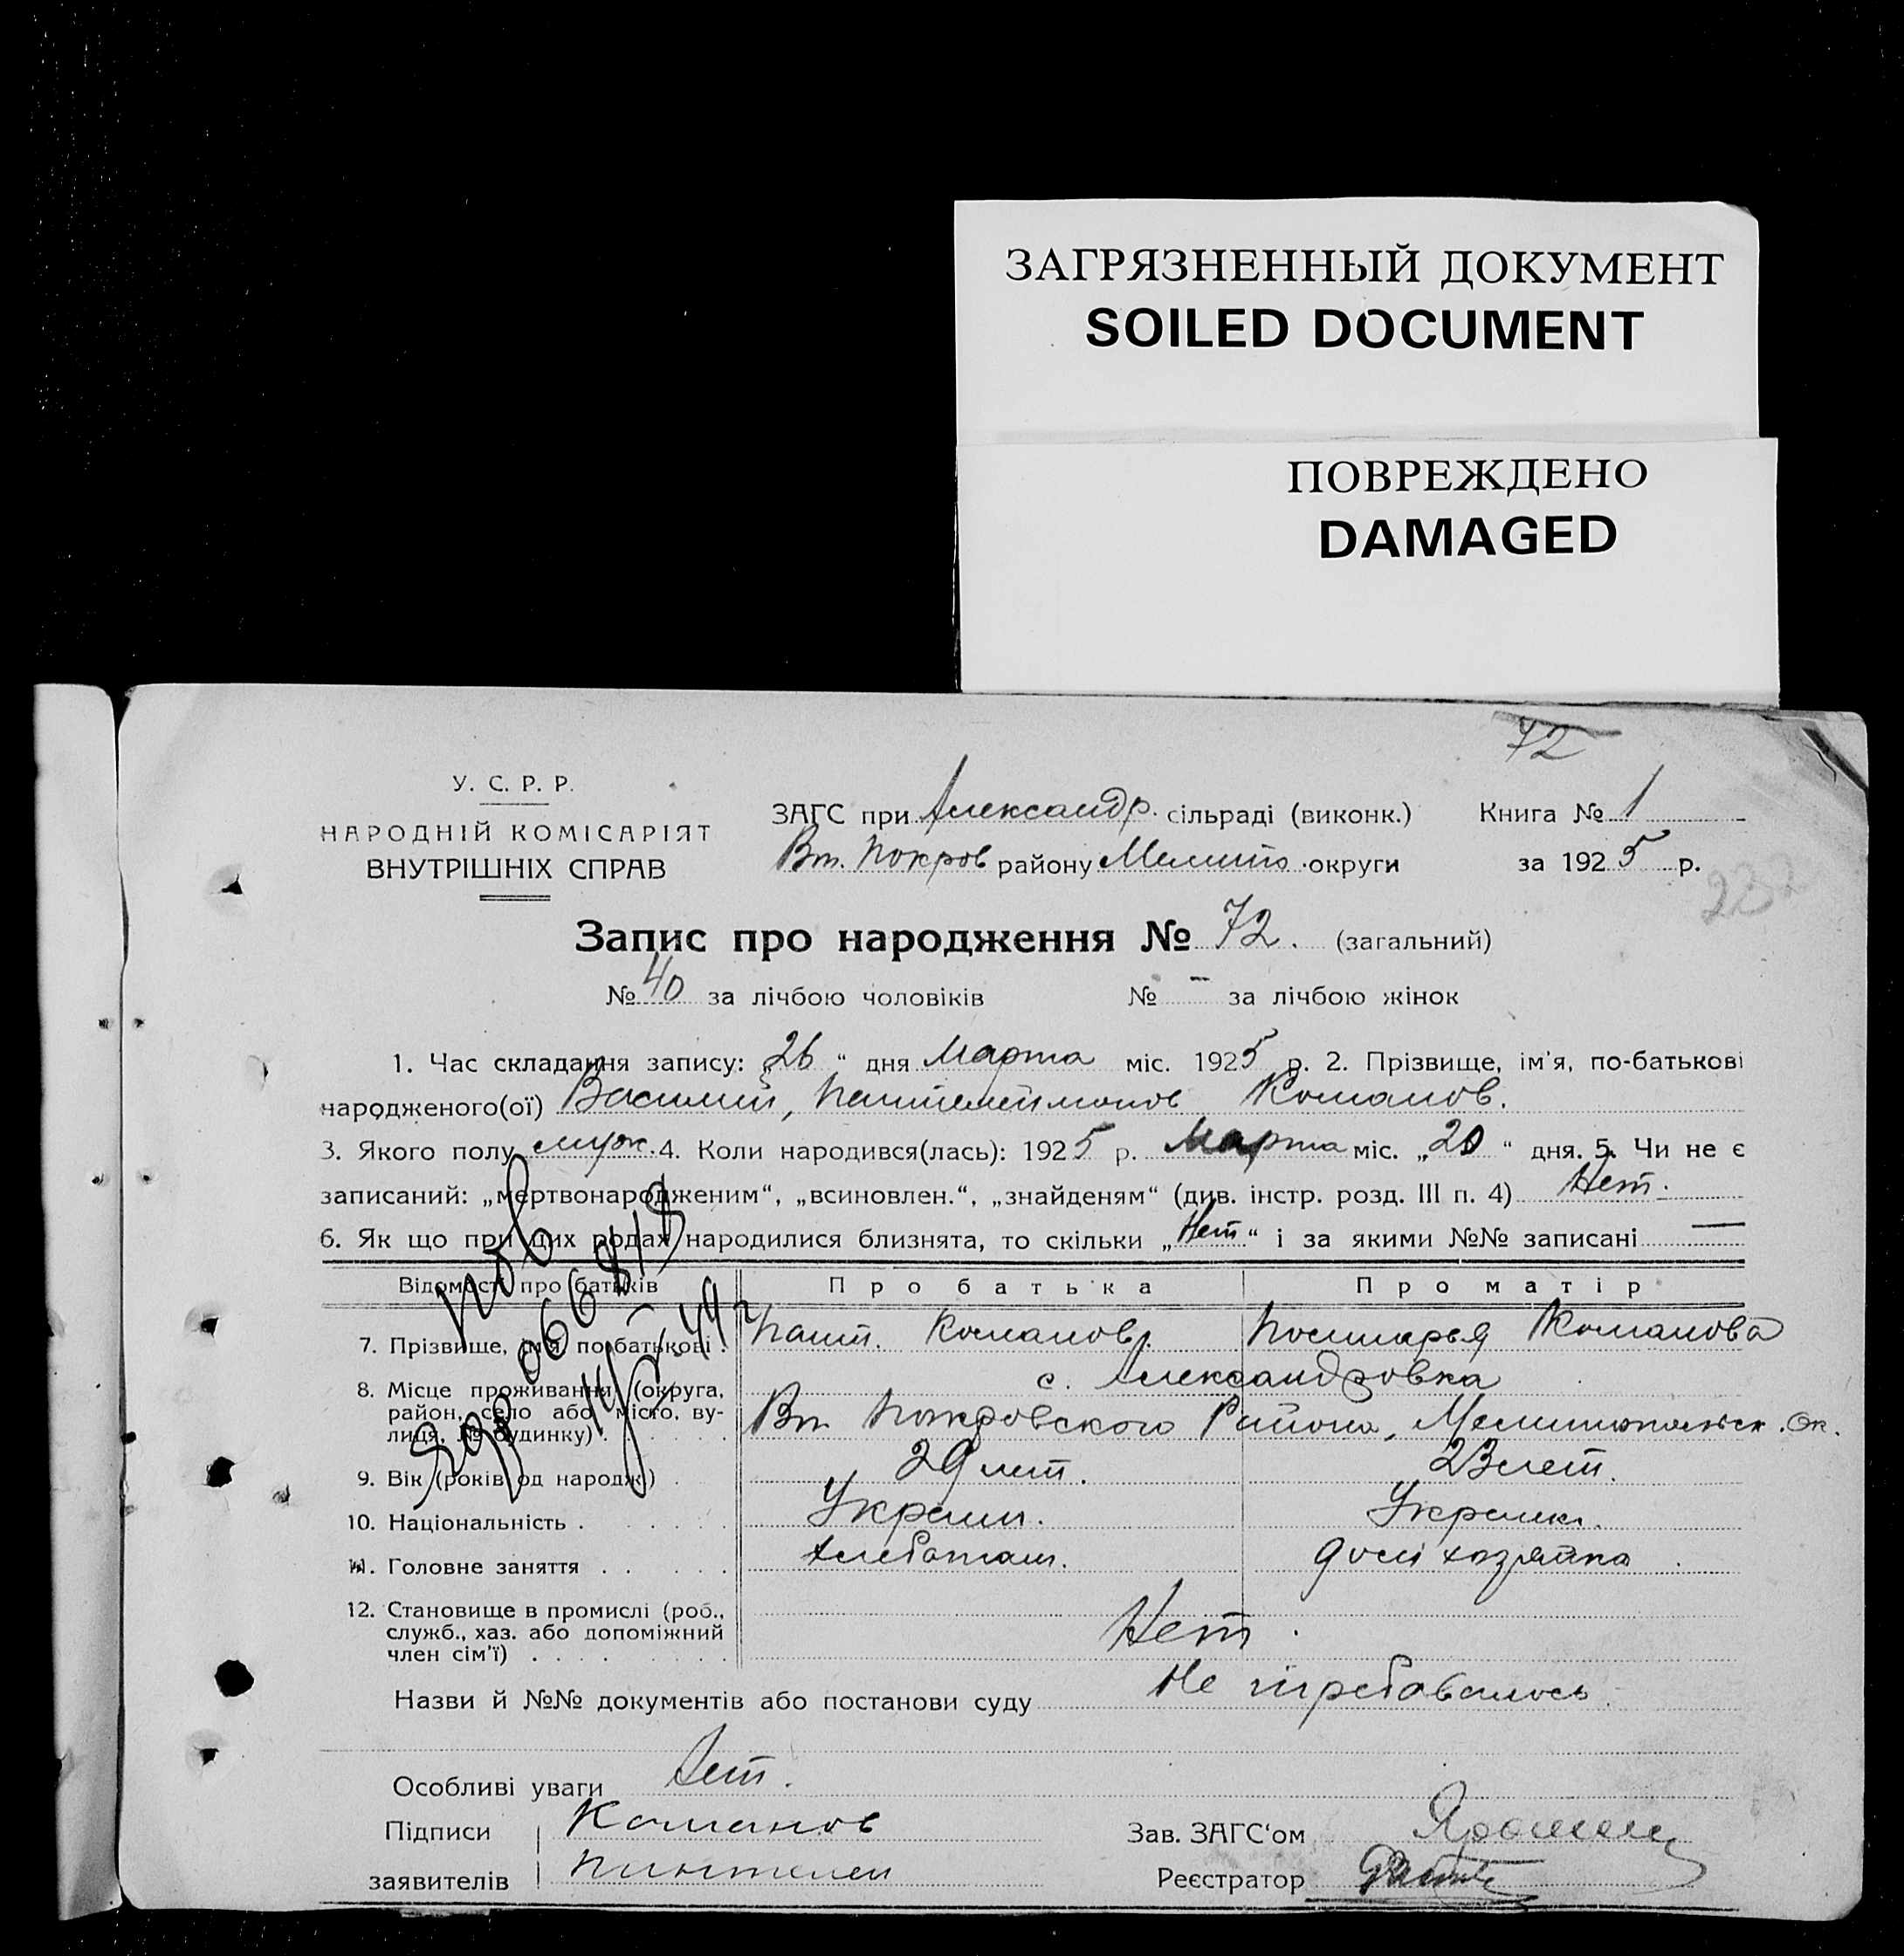 ЗАГРЯЗНЕННЫЙ ДОКУМЕНТ
SOILED DOCUMENT
ПОВРЕЖДЕНО
DAMAGED
72
У. С. Р. Р.
НАРОДНІЙ КОМІСАРІЯТ
ВНУТРІШНІХ СПРАВ
ЗАГС при Александр. сільраді (виконк.) Книга № 1
Вт. Покров району Мелито округи за 1925 р.
232
Запис про народження № 72. (загальний)
№ 40 за лічбою чоловіків № – за лічбою жінок
1. Час складання запису: „26“ дня Марта міс. 1925 р. 2. Прізвище, ім'я, по-батькові
народженого(ої) Василий, Романов.
3. Якого полу муж. 4. Коли народився(лась): 1925 р. Марта міс. „20“ дня. 5. Чи не є
записаний: „мертвонародженим“, „всиновлен.“, „знайденям“ (див. інстр. розд. III п. 4) Нет.
6. Як що при цих родах народилися близнята, то скільки „Нет“ і за якими №№ записані —
Відомості про батьків Про батька Про матір
7. Прізвище, ім'я, по батькові . Пант.
8. Місце проживання (округа, с. Александровка
район, село або місто, ву- Вт. Покровского Района, Мелитопольск. Ок.
лиця, № будинку) .
9. Вік (років од народж.) . 29 лет. 23 лет.
10. Національність . Украин. Украинк.
11. Головне заняття . . хлебопаш. дом хозяйка
12. Становище в промислі (роб.,
служб., хаз. або допоміжний Нет.
член сім'ї) . . . .
Назви й №№ документів або постанови суду Не требовалось.
Особливі уваги Нет.
Підписи Команов Зав. ЗАГС‘ом
заявителів Пантелей Реєстратор